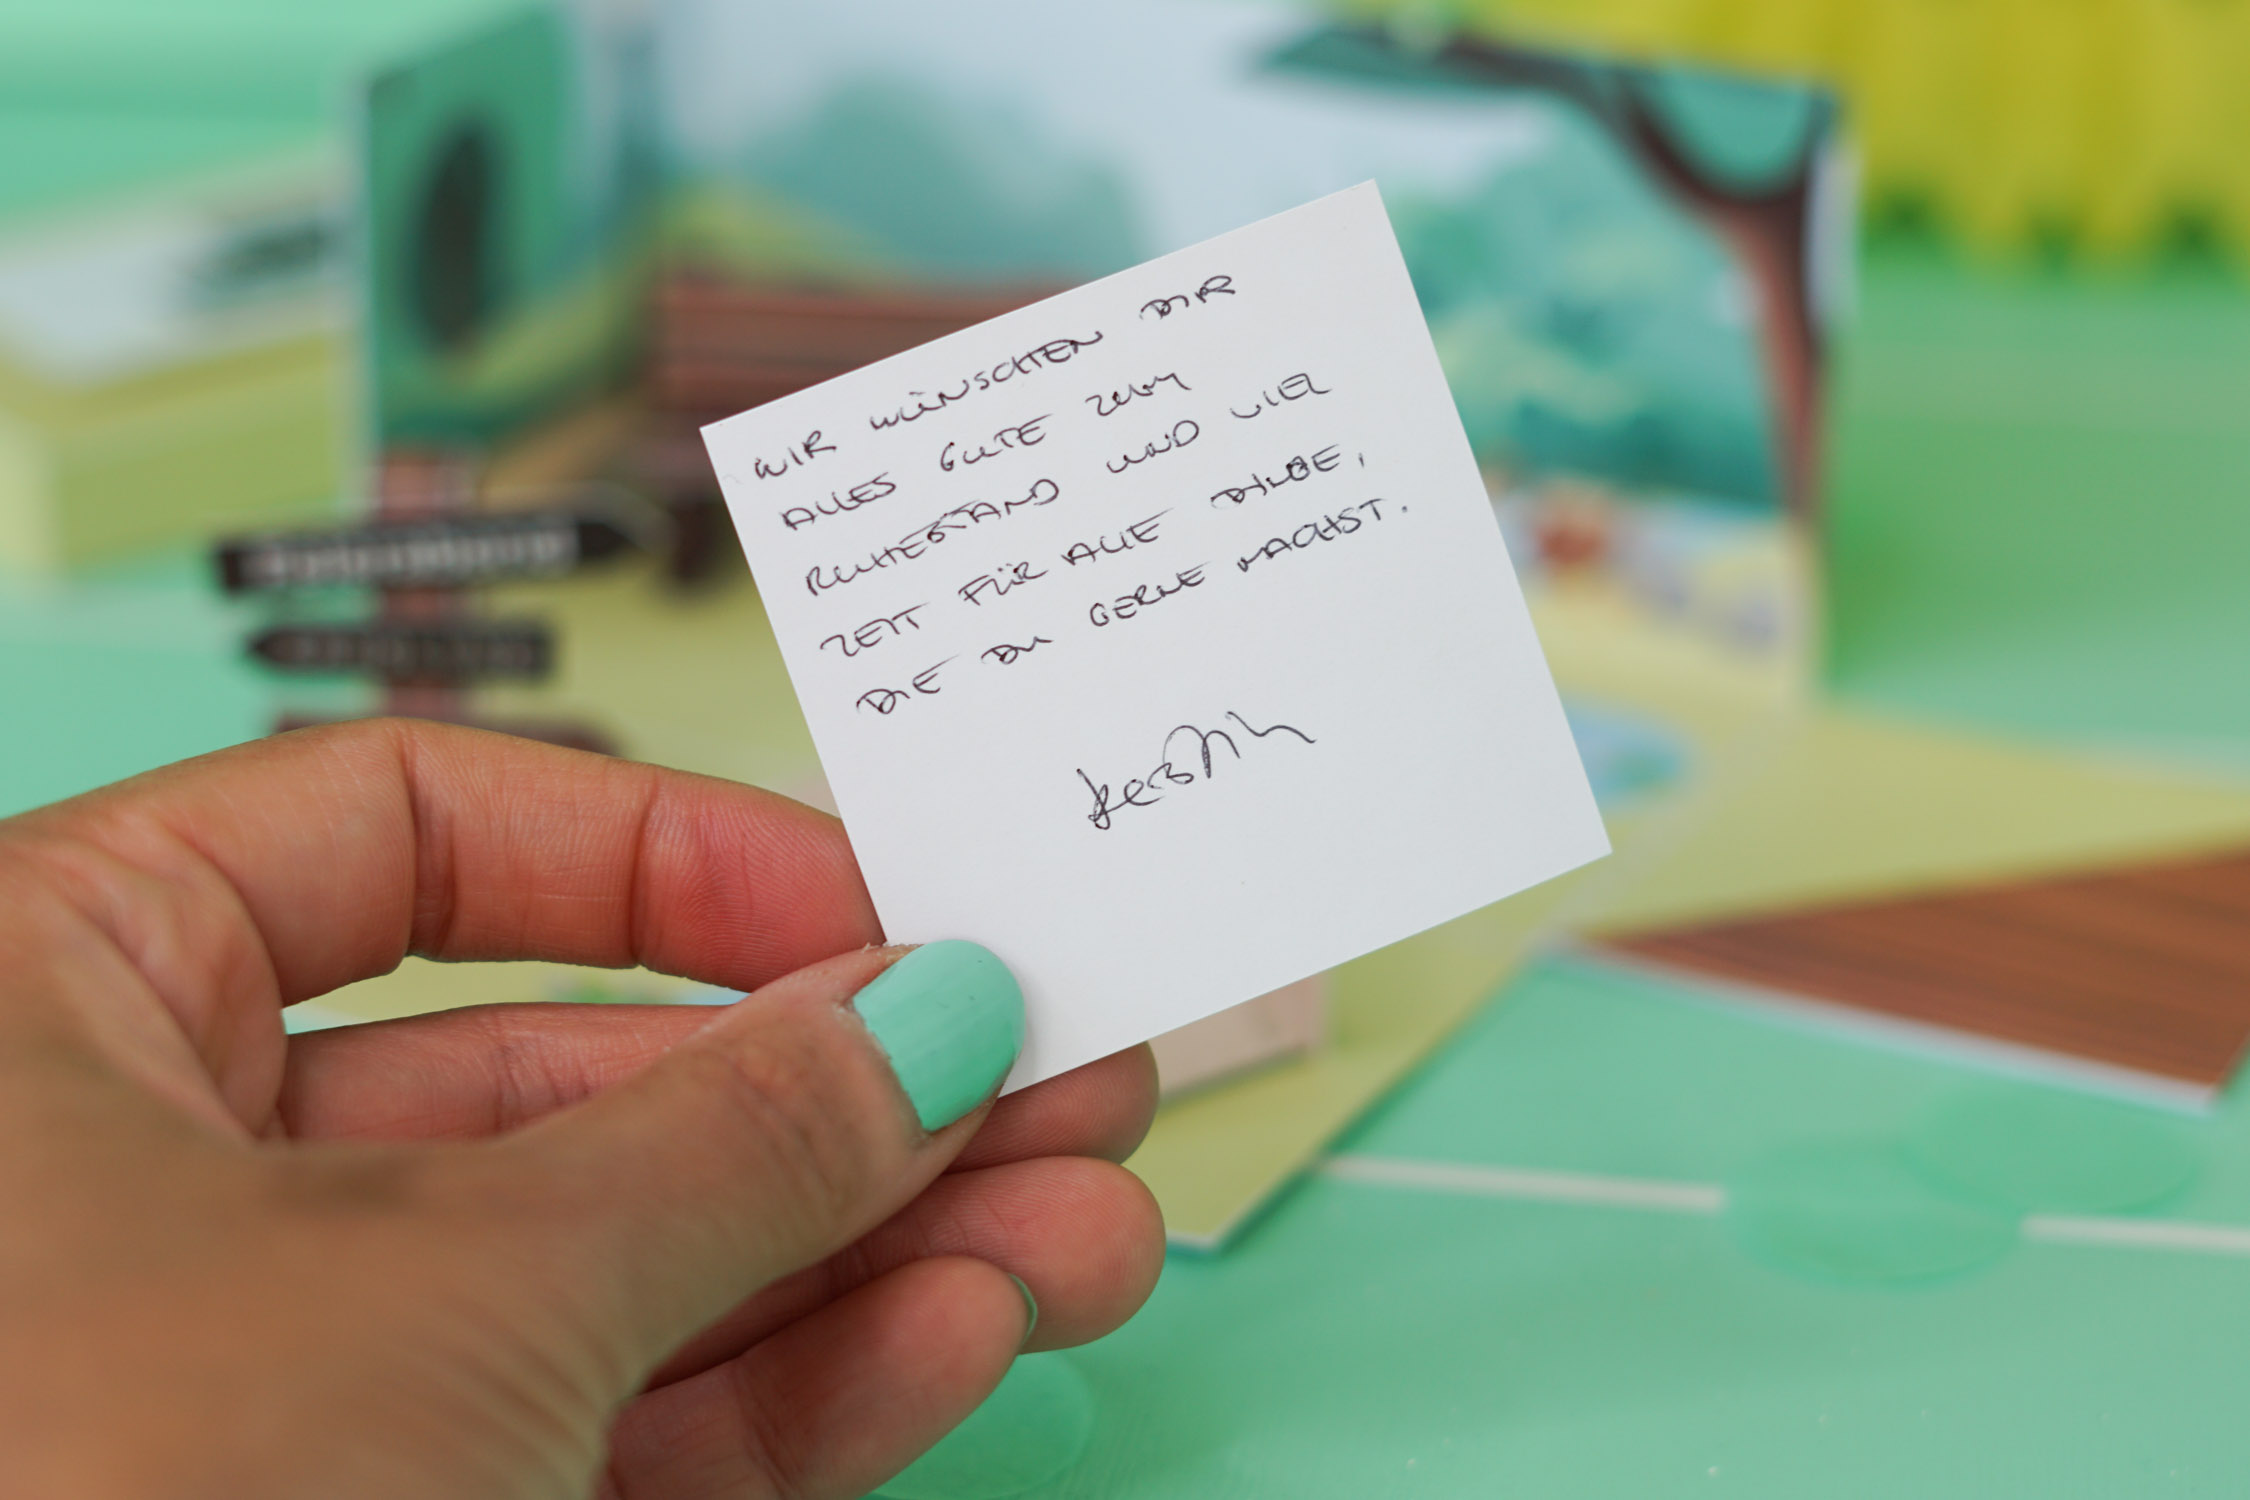 WIR WÜNSCHEN DIR
ALLES GUTE ZUM
RUHESTAND UND VIEL
ZEIT FÜR ALLE DINGE,
DIE DU GERNE MACHST.